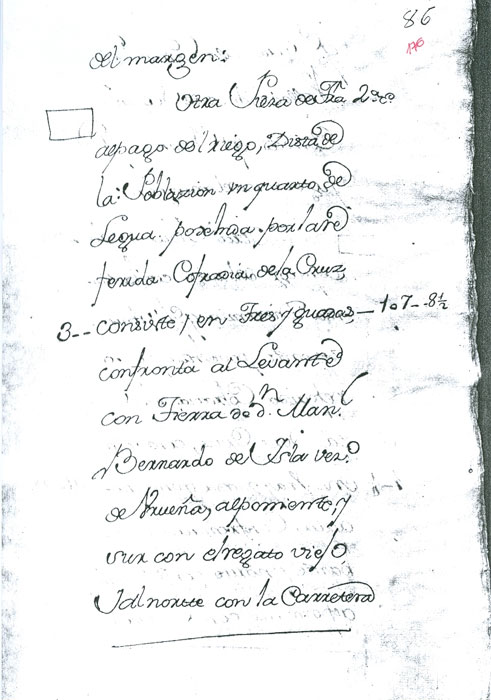 86
176
del margen:
Otra Pieza de Tra 2ª
al pago del riego, Dista de
la Poblazion un quarto de
Legua poxehida por la re
ferida Cofradia de la Cruz,
3-- consiste, en Tres yguazas — 1 o 7 -- 8½
confronta al Levante
con Tierra de dn. Man.l
Bernardo del Isla vez.o
de Nrueña, al poniente, y
sur con el regato viejo
Y al norte con la Carretera